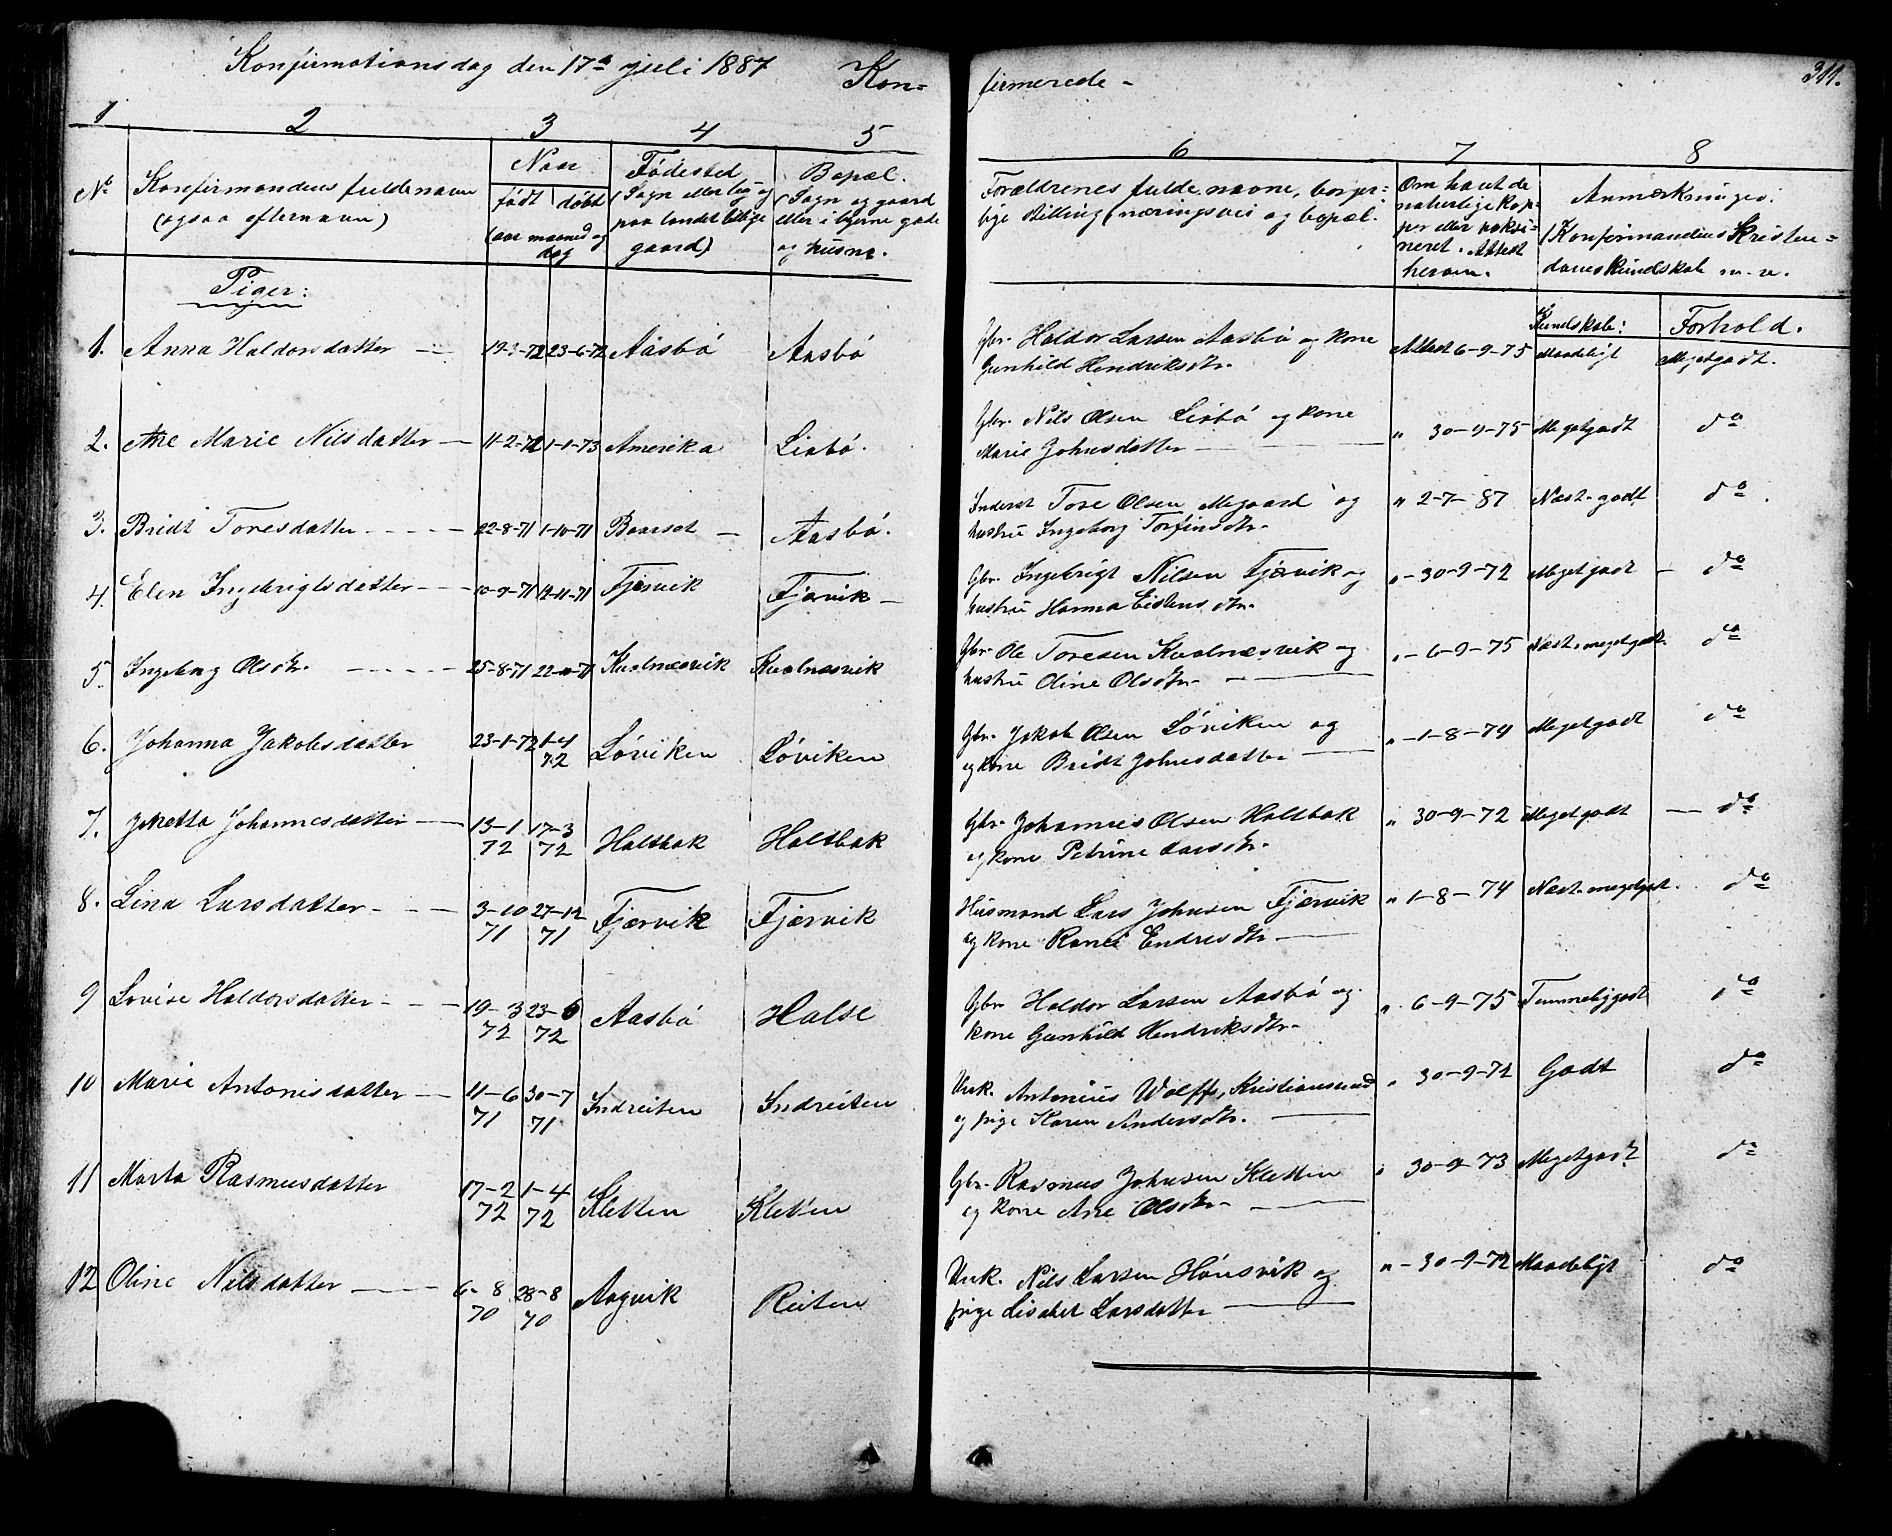 Konfirmationsdag den 17de juli 1887 Kon-
firmerede - 311.
1 2 3 4 5 6 7 8
No Konfirmandens fulde navn (ogsaa efternavn)
Naar født døbt (aar maaned og dag
Fødested (Sogn eller by og paa landet tillige gaard)
Bopæl. (Sogn og gaard eller i byerne gade og husnr.
Forældrenes fulde navne, borger-
lige stilling (næringsvei og bopæl.
Om havt de naturlige kop-
per eller vaksi-
neret. Attest herom.
Anmærkninger.
(Konfirmandens Kristen-
domskundskab m. v.
Kundskab: Forhold.
Piger:
1. Anna Haldorsdatter 19-3-72 23-6-72 Aasbø Aasbø Gbr. Haldor Larsen Aasbø og kone Attest 6-9-75 Maadeligt Megetgodt.
Gunhild Hendriksdtr.
2. Ane Marie Nilsdatter 11-2-72 1-1-73 Amerika Lisbø. Gbr. Nils Olsen Lisbø og kone " 30-9-75 Megetgodt do
Marie Johnsdatter
3. Bridt Toresdatter 22-8-71 1-10-71 Baarset Aasbø. Inderst Tore Olsen Megaard og " 2-7-87 Næst. godt do.
hustru Ingeborg Torfinsdtr.
4. Elen Ingebrigtsdatter 10-9-71 12-11-71 Fjærvik Fjærvik Gbr. Ingebrigt Nilsen Fjærvik og " -30-9-72 Megetgodt do
hustru Hanna Eistensdtr.
5. Ingeborg Olsdtr. 25-8-71 22-10-71 Kvalnæsvik Kvalnæsvik Gbr. Ole Toresen Kvalnæsvik og " -6-9-75 Næst. megetgodt. do
hustru Oline Olsdtr.
6. Johanna Jakobsdatter 23-1-72 1-4 72 Løviken Løviken Gbr. Jakob Olsen Løviken og " -1-8-74 Megetgodt do
og kone Bridt Johnsdatter
7. Joketta Johannesdatter 13-1 72 17-3 72 Haltbak Haltbak Gbr. Johannes Olsen Haltbak " 30-9-72 Megetgodt do
og kone Petrine Larsdtr.
8. Lina Larsdatter 3-10 71 27-12 71 Fjærvik Fjærvik Husmand Lars Johnsen Fjærvik " 1-8-74 Næst. megetgodt. do
og kone Ranei Endresdtr.
9 Lovise Haldorsdatter 19-3 72 23-6 72 Aasbø Halse Gbr Haldor Larsen Aasbø og " 6-9-75 Temmeliggodt do
kone Gunhild Hendriksdtr.
10 Marie Antonisdatter 11-6 71 30-7 71 Indreiten Indreiten Unk. Antonius Wolff, Kristianssund " 30-9-72 Godt do
og pige Karen Andersdtr.
11 Marta Rasmusdatter 17-2 72 1-4 72 Kletten Kletten Gbr. Rasmus Johnsen Kletten " 30-9-73 Megetgodt do
og kone Ane Olsdtr
12 Oline Nilsdatter 6-8 70 28-8 70 Aagvik Reiten Unk. Nils Larsen Hønsvik og " -30-9-72 Maadeligt do
pige Lisabet Larsdatter